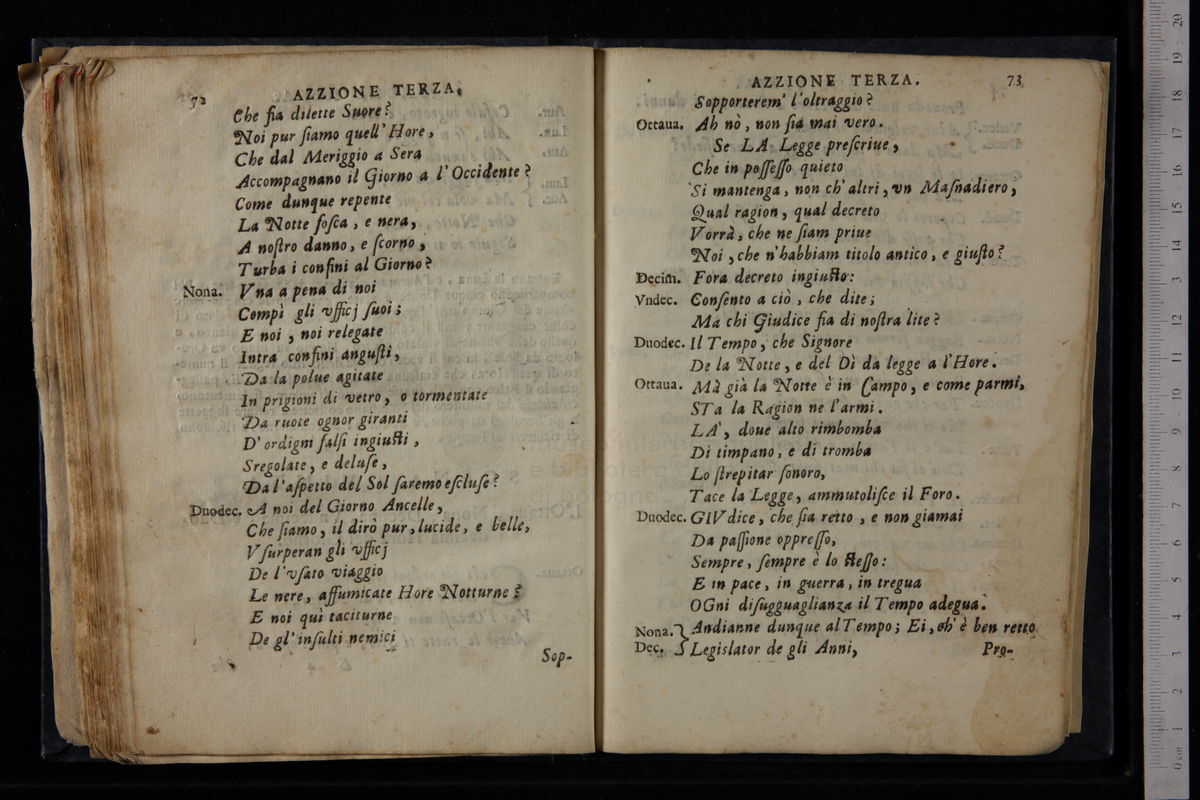 72 AZZIONE TERZA.
Che ſia dilette Suore?
Noi pur ſiamo quell' Hore,
Che dal Meriggio a Sera
Accompagnano il Giorno a l'Occidente?
Come dunque repente
La Notte foſca, e nera,
A noſtro danno, e ſcorno,
Turba i confini al Giorno?
Nona. Vna a pena di noi
Compì gli vfficj ſuoi;
E noi, noi relegate
Intra confini anguſti,
Da la polue agitate
In prigioni di vetro, o tormentate
Da ruote ognor giranti
D'ordigni falſi ingiuſti,
Sregolate, e deluſe,
Da l'aſpetto del Sol ſaremo eſcluſe?
Duodec. A noi del Giorno Ancelle,
Che ſiamo, il dirò pur, lucide, e belle,
Vſurperan gli vfficj
De l'vſato viaggio
Le nere, affumicate Hore Notturne?
E noi quì taciturne
De gl'inſulti nemici
Sop-
AZZIONE TERZA. 73
Sopporterem' l'oltraggio?
Ottaua. Ah nò, non ſia mai vero.
Se LA Legge preſcriue,
Che in poſſeſſo quieto
Si mantenga, non ch'altri, vn Maſnadiero,
Qual ragion, qual decreto
Vorrà, che ne ſiam priue
Noi, che n'habbiam titolo antico, e giuſto?
Decim. Fora decreto ingiuſto:
Vndec. Conſento a ciò, che dite;
Ma chi Giudice fia di noſtra lite?
Duodec. Il Tempo, che Signore
De la Notte, e del Dì da legge a l'Hore.
Ottaua. Mà già la Notte è in Campo, e come parmi,
STa la Ragion ne l'armi.
LA', doue alto rimbomba
Di timpano, e di tromba
Lo ſtrepitar ſonoro,
Tace la Legge, ammutoliſce il Foro.
Duodec. GIVdice, che ſia retto, e non giamai
Da paſſione oppreſſo,
Sempre, ſempre è lo ſteſſo:
E in pace, in guerra, in tregua
OGni diſugguaglianza il Tempo adegua.
Nona. Andianne dunque al Tempo; Ei, ch'è ben retto
Dec. Legislator de gli Anni, Pro-